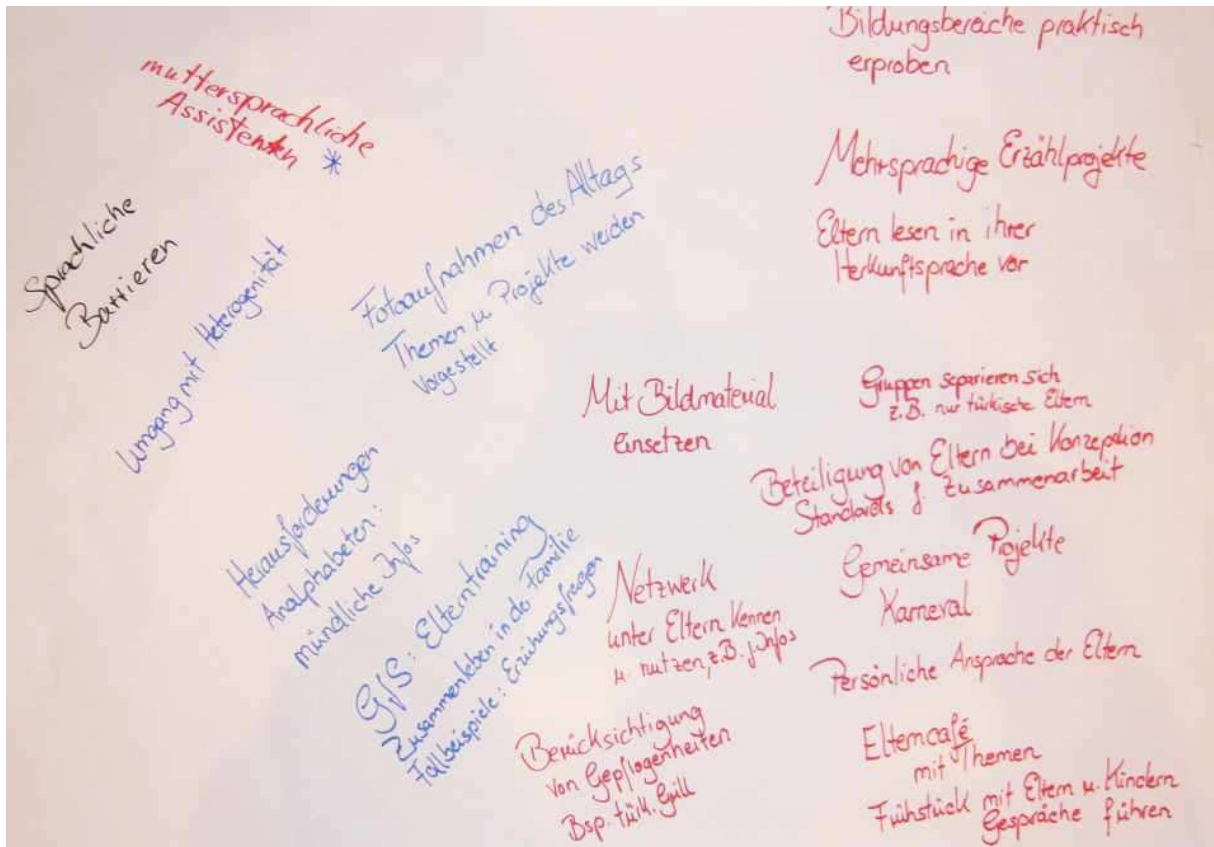 muttersprachliche
Assistenten *
Sprachliche
Barrieren
Umgang mit Heterogenität
Fotoaufnahmen des Alltags
Themen u. Projekte werden
vorgestellt
Herausforderungen
Analphabeten:
mündliche Infos
GfS: Elterntraining
Zusammenleben in der Familie
Fallbeispiele: Erziehungsfragen
Bildungsbereiche praktisch
erproben
Mehrsprachige Erzählprojekte
Eltern lesen in ihrer
Herkunftsprache vor
Mit Bildmaterial
Einsetzen
Gruppen separieren sich
z.B. nur türkische Eltern
Beteiligung von Eltern bei Konzeption
Standards f. Zusammenarbeit
Netzwerk
unter Eltern kennen
u. nutzen, z.B. f. Infos
Gemeinsame Projekte
Karneval
Persönliche Ansprache der Eltern
Berücksichtigung
von Gepflogenheiten
Bsp. türk. Grill
Elterncafé
mit Themen
Frühstück mit Eltern u. Kindern
Gespräche führen